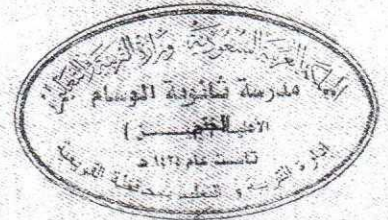 المملكة العربية السعودية وزارة التربية والتعليم
مدرسة ثانوية الوسام
تأسست عام ١٤٢٤ هـ
إدارة التربية و التعليم بمحافظة القويعية